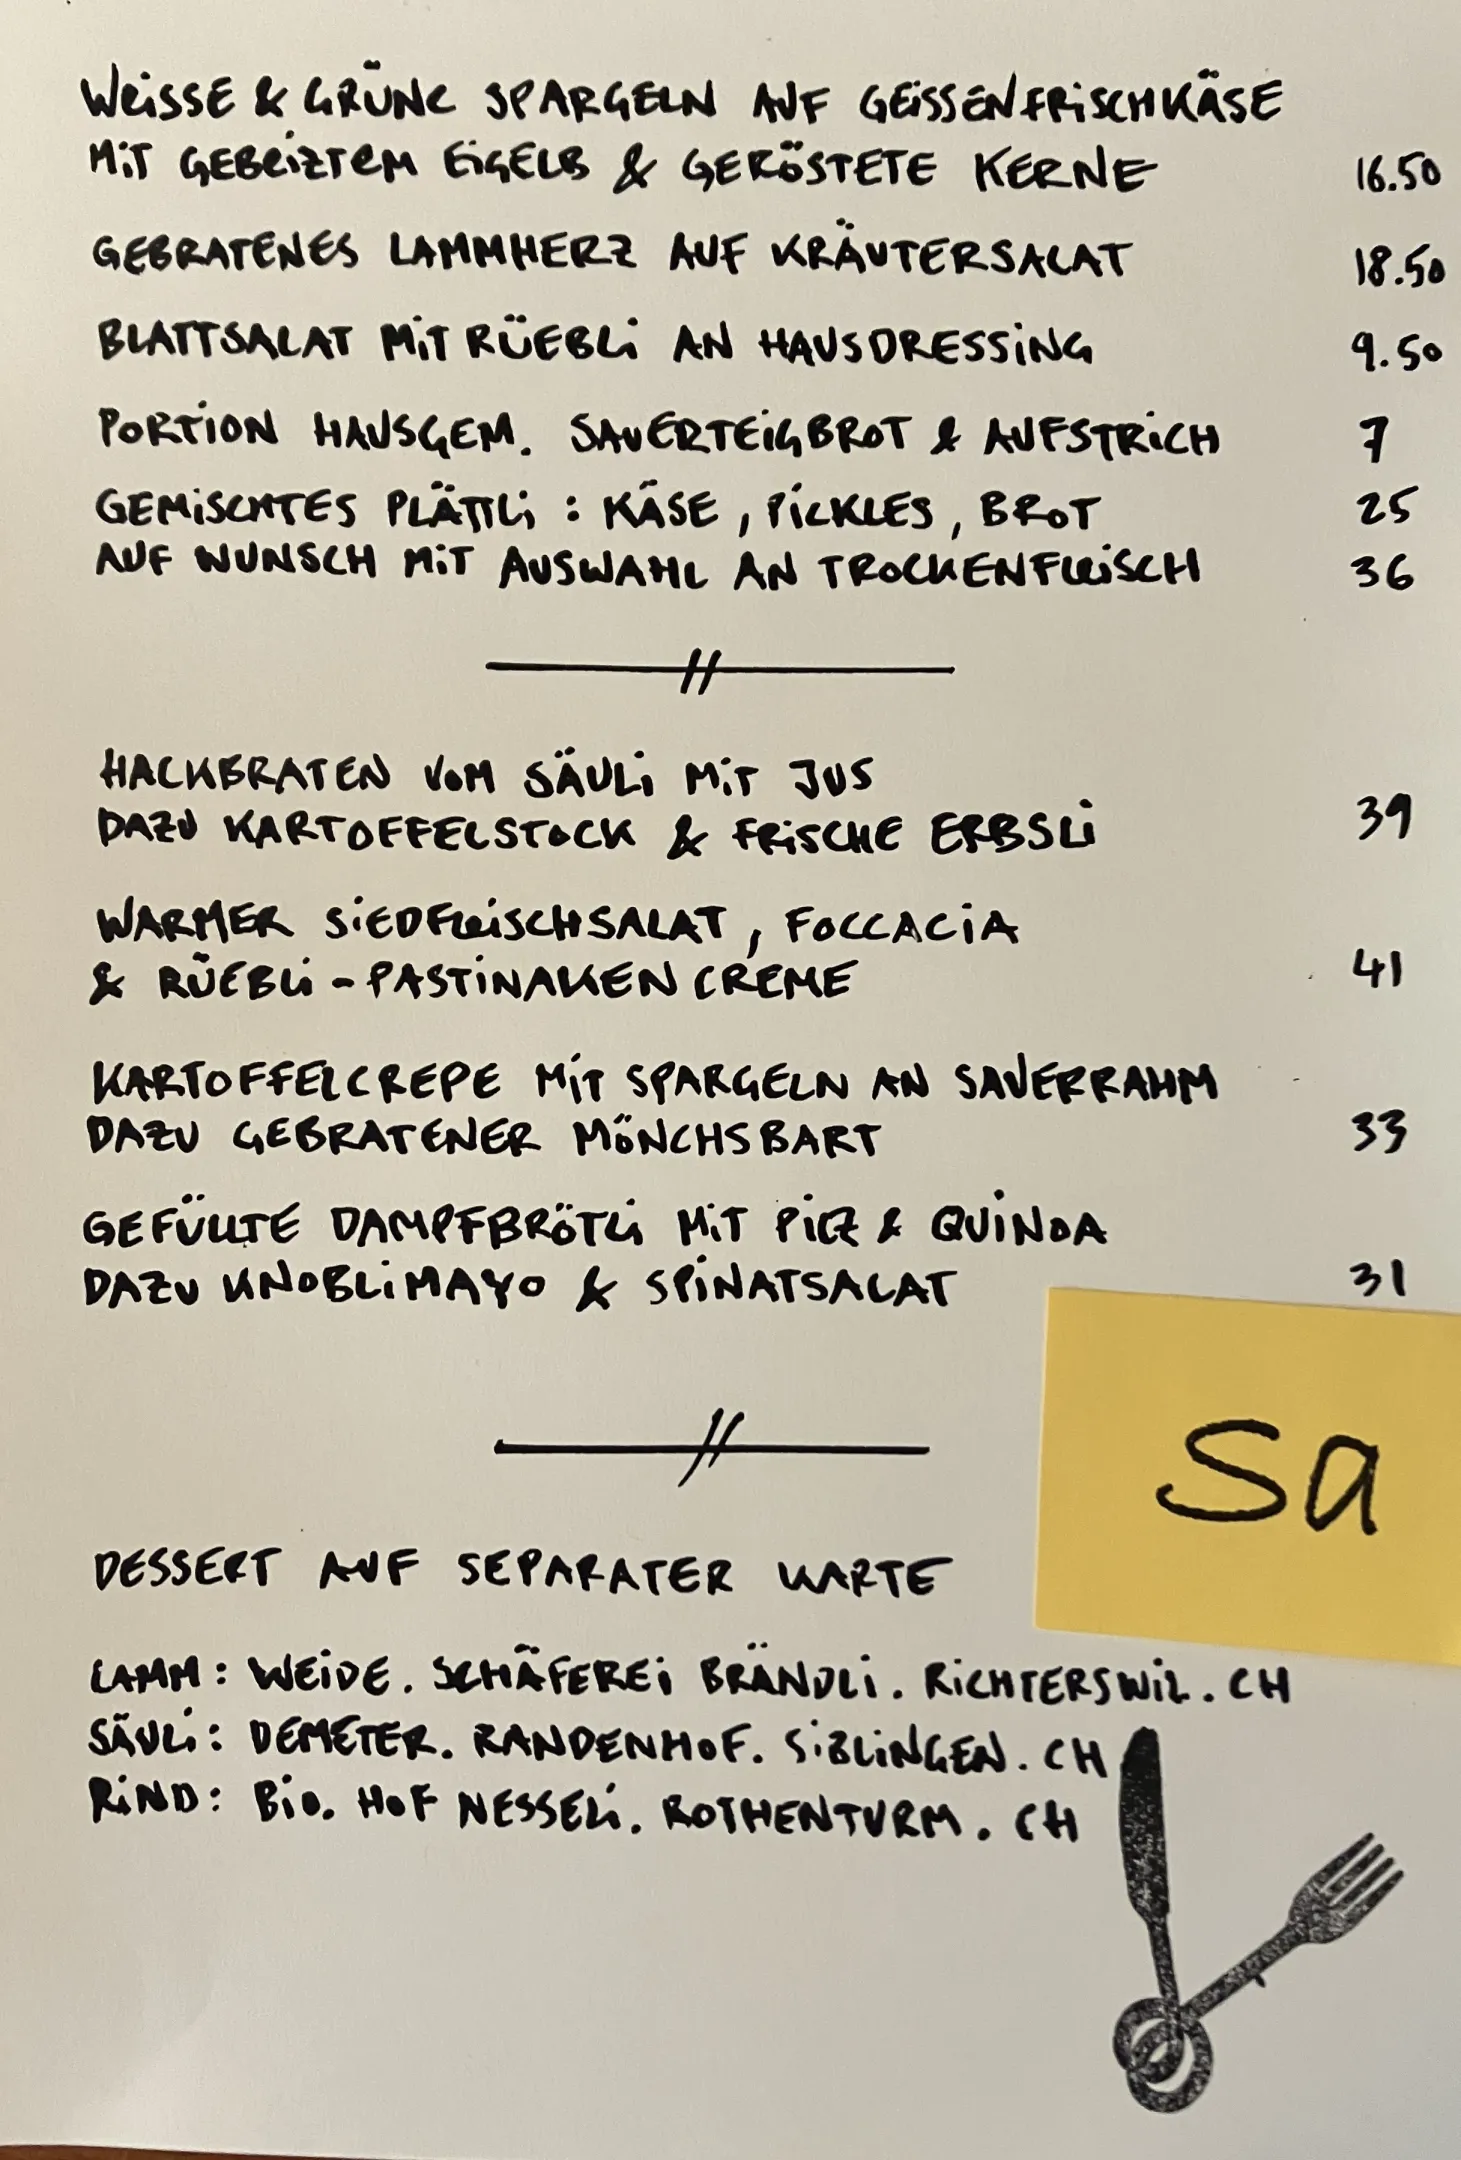 WEISSE & GRÜNE SPARGELN AUF GEISSENFRISCHKÄSE
MIT GEBEIZTEM EIGELB & GERÖSTETE KERNE 16.50
GEBRATENES LAMMHERZ AUF KRÄUTERSALAT 18.50
BLATTSALAT MIT RÜEBLI AN HAUSDRESSING 9.50
PORTION HAUSGEM. SAUERTEIGBROT & AUFSTRICH 7
GEMISCHTES PLÄTTLI : KÄSE, PICKLES, BROT 25
AUF WUNSCH MIT AUSWAHL AN TROCKENFLEISCH 36
HACKBRATEN VOM SÄULI MIT JUS
DAZU KARTOFFELSTOCK & FRISCHE ERBSLI 39
WARMER SIEDFLEISCHSALAT, FOCCACIA
& RÜEBLI - PASTINAKEN CREME 41
KARTOFFELCREPE MIT SPARGELN AN SAUERRAHM
DAZU GEBRATENER MÖNCHSBART 33
GEFÜLLTE DAMPFBRÖTLI MIT PILZ & QUINOA
DAZU KNOBLIMAYO & SPINATSALAT 31
Sa
DESSERT AUF SEPARATER KARTE
LAMM: WEIDE. SCHÄFEREI BRÄNDLI. RICHTERSWIL. CH
SÄULI: DEMETER. RANDENHOF. SIBLINGEN. CH
RIND: BIO. HOF NESSELI. ROTHENTURM. CH